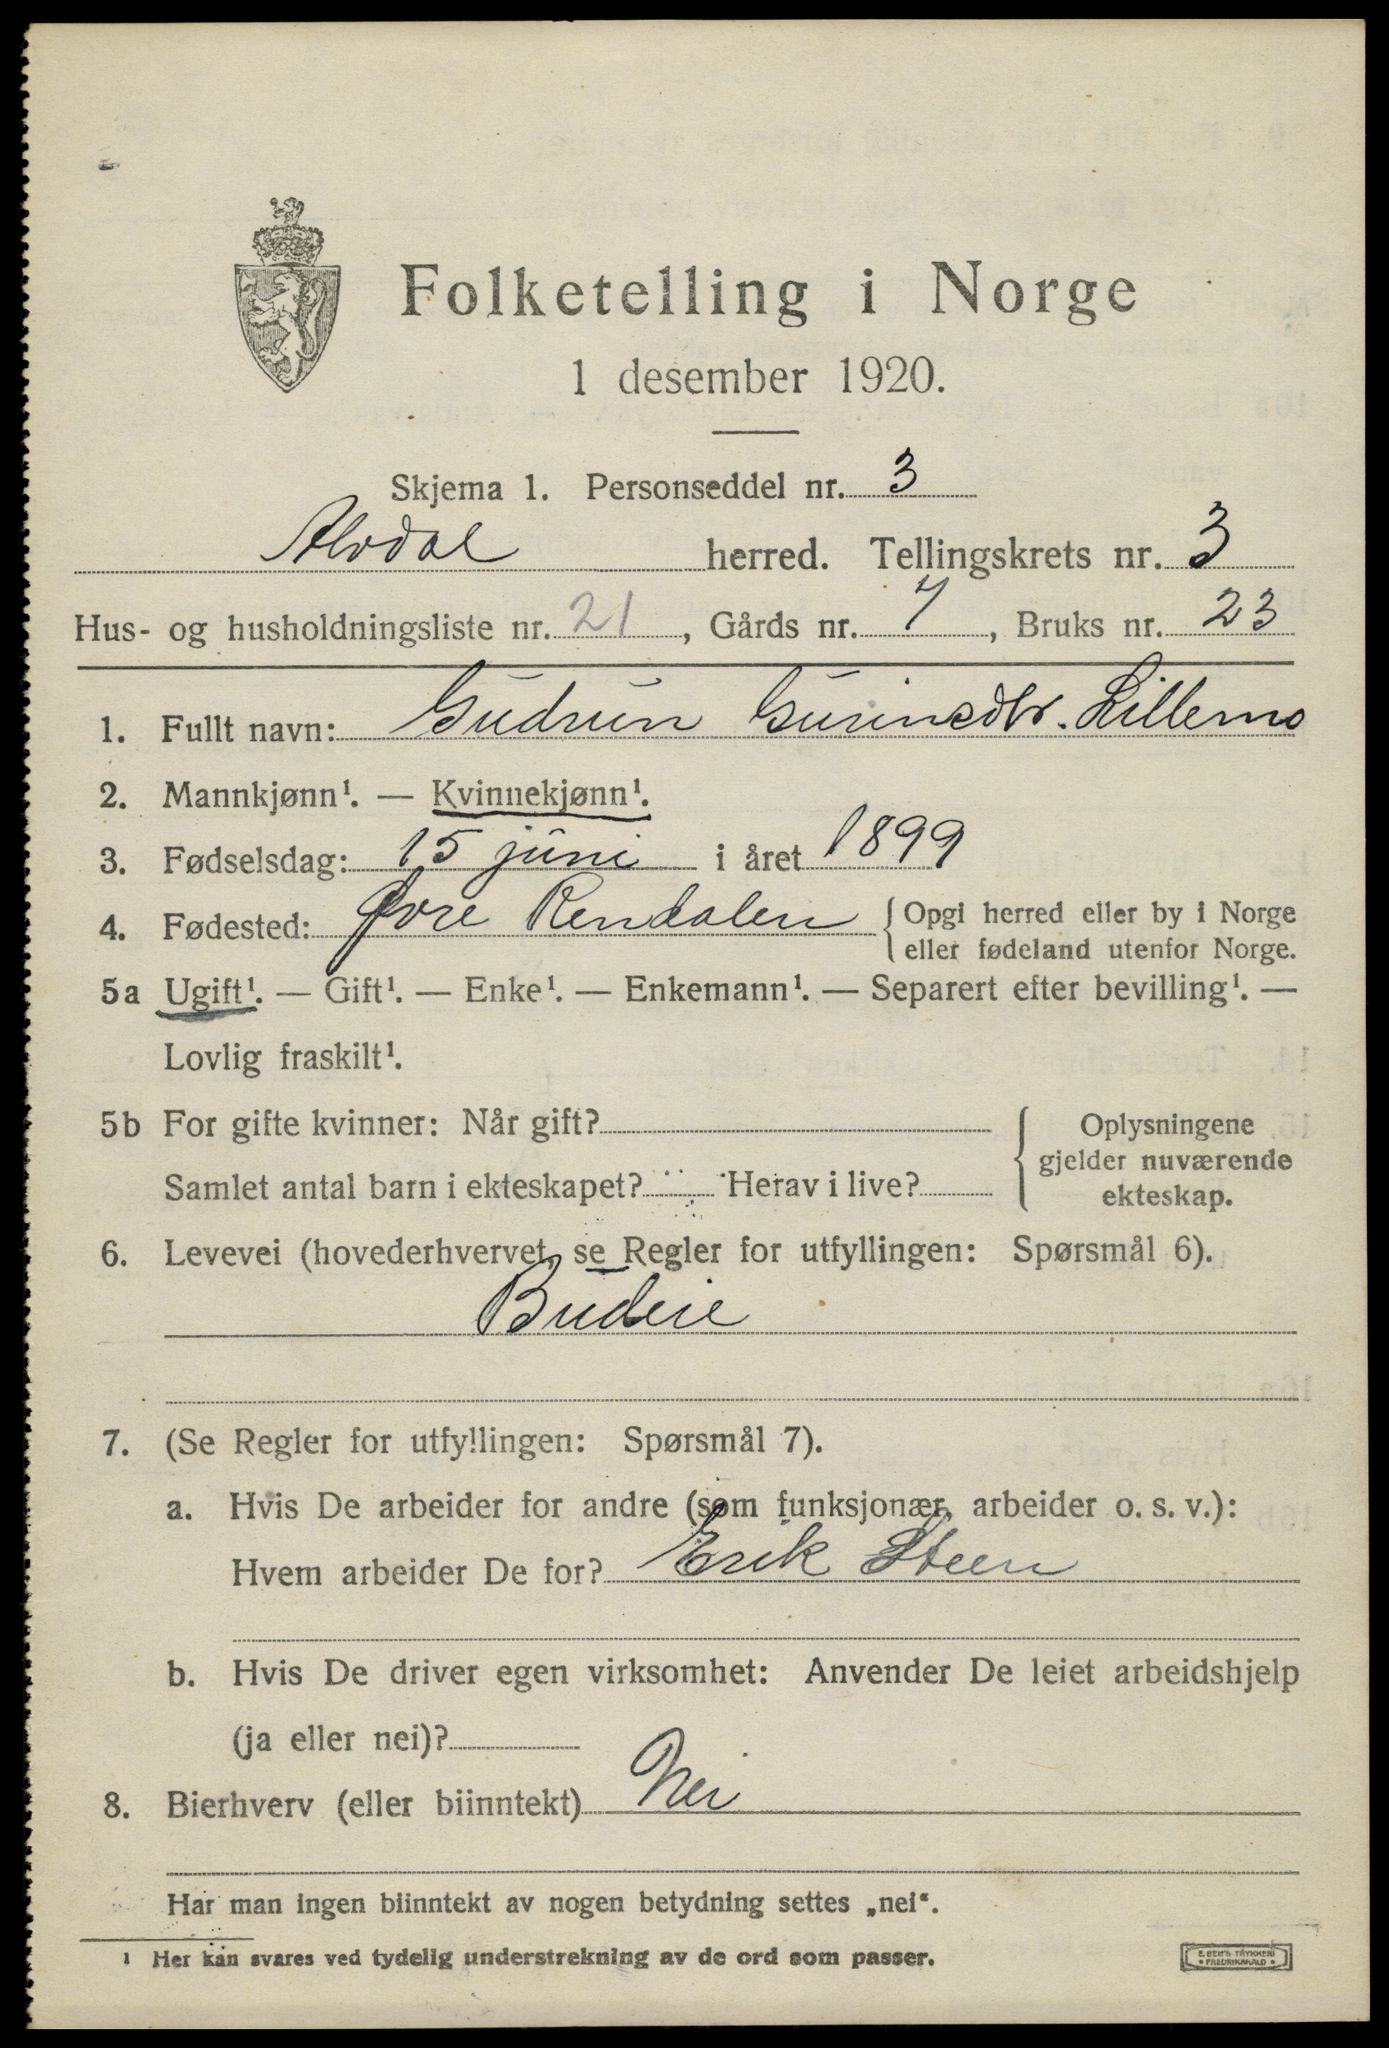 Folketelling i Norge
1 desember 1920.
Skjema 1. Personseddel nr. 3
Alvdal herred. Tellingskrets nr. 3
Hus- og husholdningsliste nr. 21, Gårds nr. 7, Bruks nr. 23
1. Fullt navn: Gudrun Gurinedtr. Lillemo
2. Mannkjønn¹. — Kvinnekjønn¹.
3. Fødselsdag: 15 juni i året 1899
4. Fødested: Øvre Rendalen { Opgi herred eller by i Norge
eller fødeland utenfor Norge.
5a Ugift¹. — Gift¹. — Enke¹. — Enkemann¹. — Separert efter bevilling¹. —
Lovlig fraskilt¹.
5b For gifte kvinner: Når gift?
Samlet antal barn i ekteskapet? Herav i live?
Oplysningene
gjelder nuværende
ekteskap.
6. Levevei (hovederhvervet, se Regler for utfyllingen: Spørsmål 6).
Budeie
7. (Se Regler for utfyllingen: Spørsmål 7).
a. Hvis De arbeider for andre (som funksjonær, arbeider o. s. v.):
Hvem arbeider De for? Erik Steen
b. Hvis De driver egen virksomhet: Anvender De leiet arbeidshjelp
(ja eller nei)?
8. Bierhverv (eller biinntekt) Nei
Har man ingen biinntekt av nogen betydning settes „nei“.
¹ Her kan svares ved tydelig understrekning av de ord som passer.
E. SEM'S TRYKKERI
• FREDRIKSHALD •